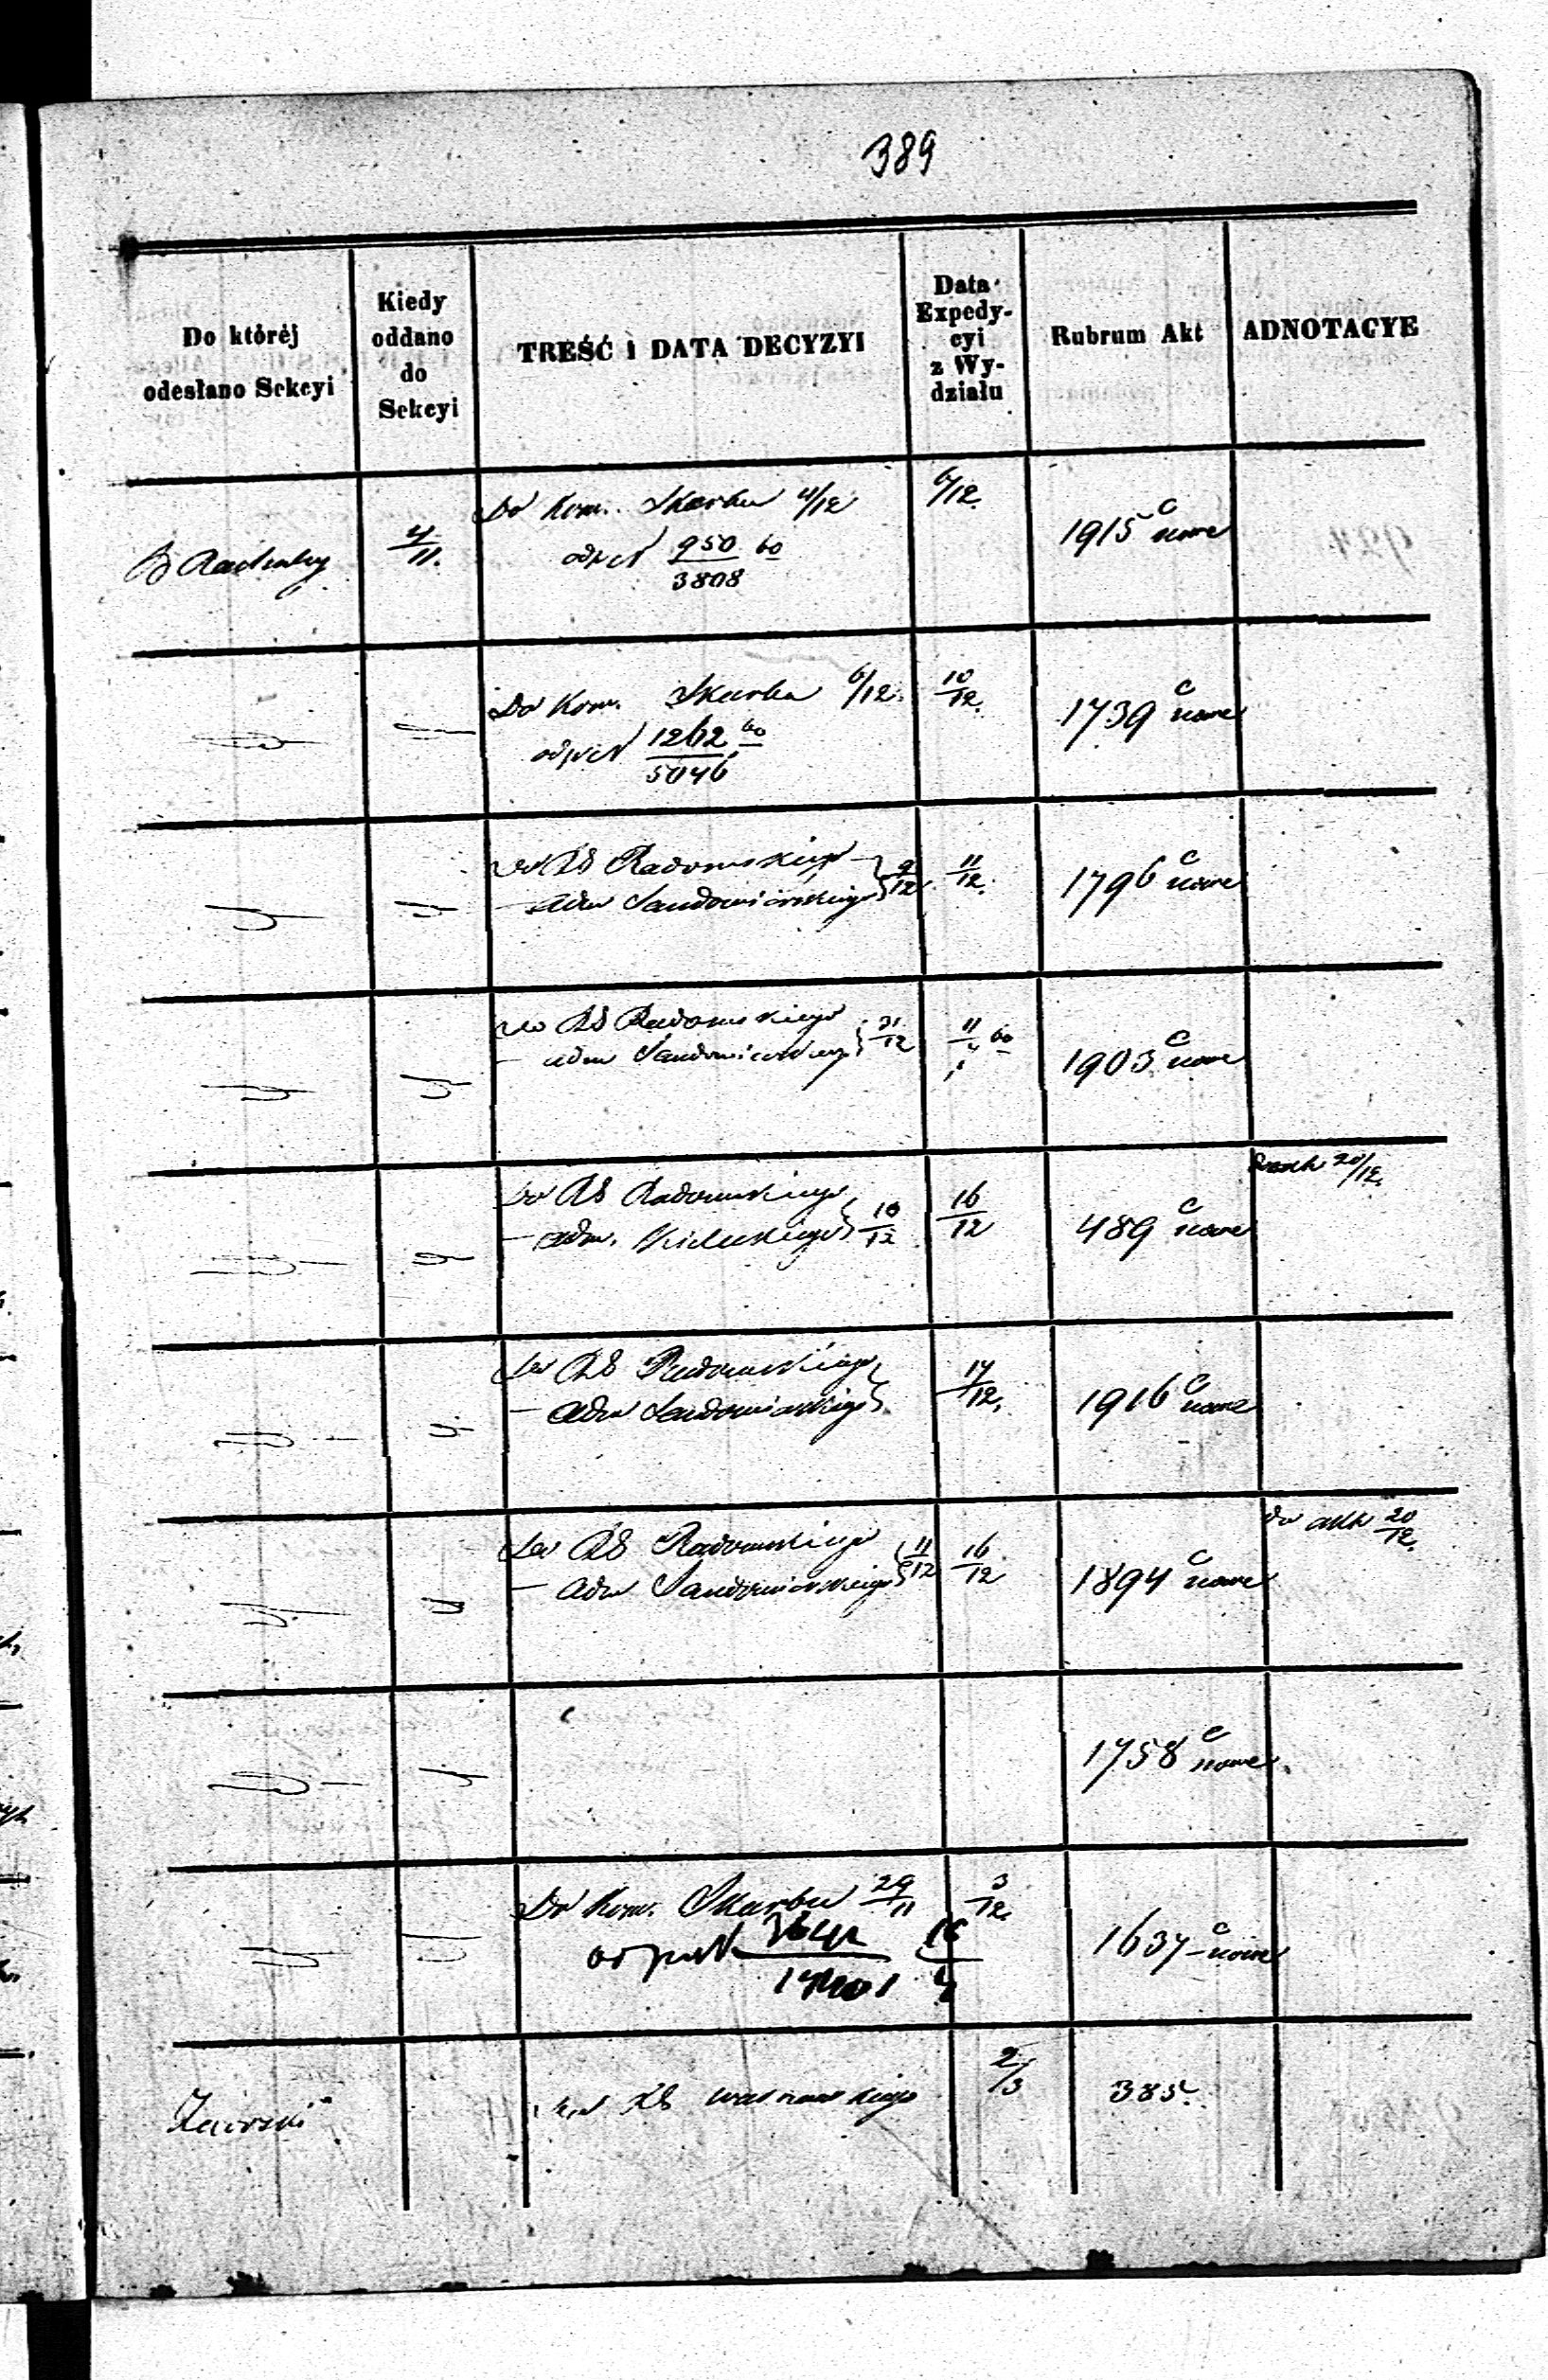 389
Do któréj
odesłano Sekcyi
Kiedy
oddano
do
Sekcyi
TREŚĆ I DATA DECYZYI
Data
Expedy-
cyi
z Wy-
działu
Rubrum Akt
ADNOTACYE
4/11.
Do Kom. Skarbu 4/12
950/3808 60
6/12.
1915 C nowe
Do Kom. Skarbu 6/12.
1262/5046 60
10/12.
1739 C nowe
Do RG Radomskiego
— Adm Sandomirskiego 9/12
11/12.
1796 C nowe
Do RG Radomskiego
— Adm Sandomirskiego
11/4 60
1903 C nowe
Do RG Radomskiego
— Adm. Kieleckiego 10/12
16/12
489 C nowe
20/12.
Do RG Radomskiego
— Adm Sandomirskiego
17/12.
1916 C nowe
Do RG Radomskiego
— Adm Sandomirskiego 11/12
16/12
1894 C nowe
Do akt 20/12.
1758 C nowe
Do Kom. Skarbu 29/11
3/12.
16/4
1637 C nowe
2/3
385